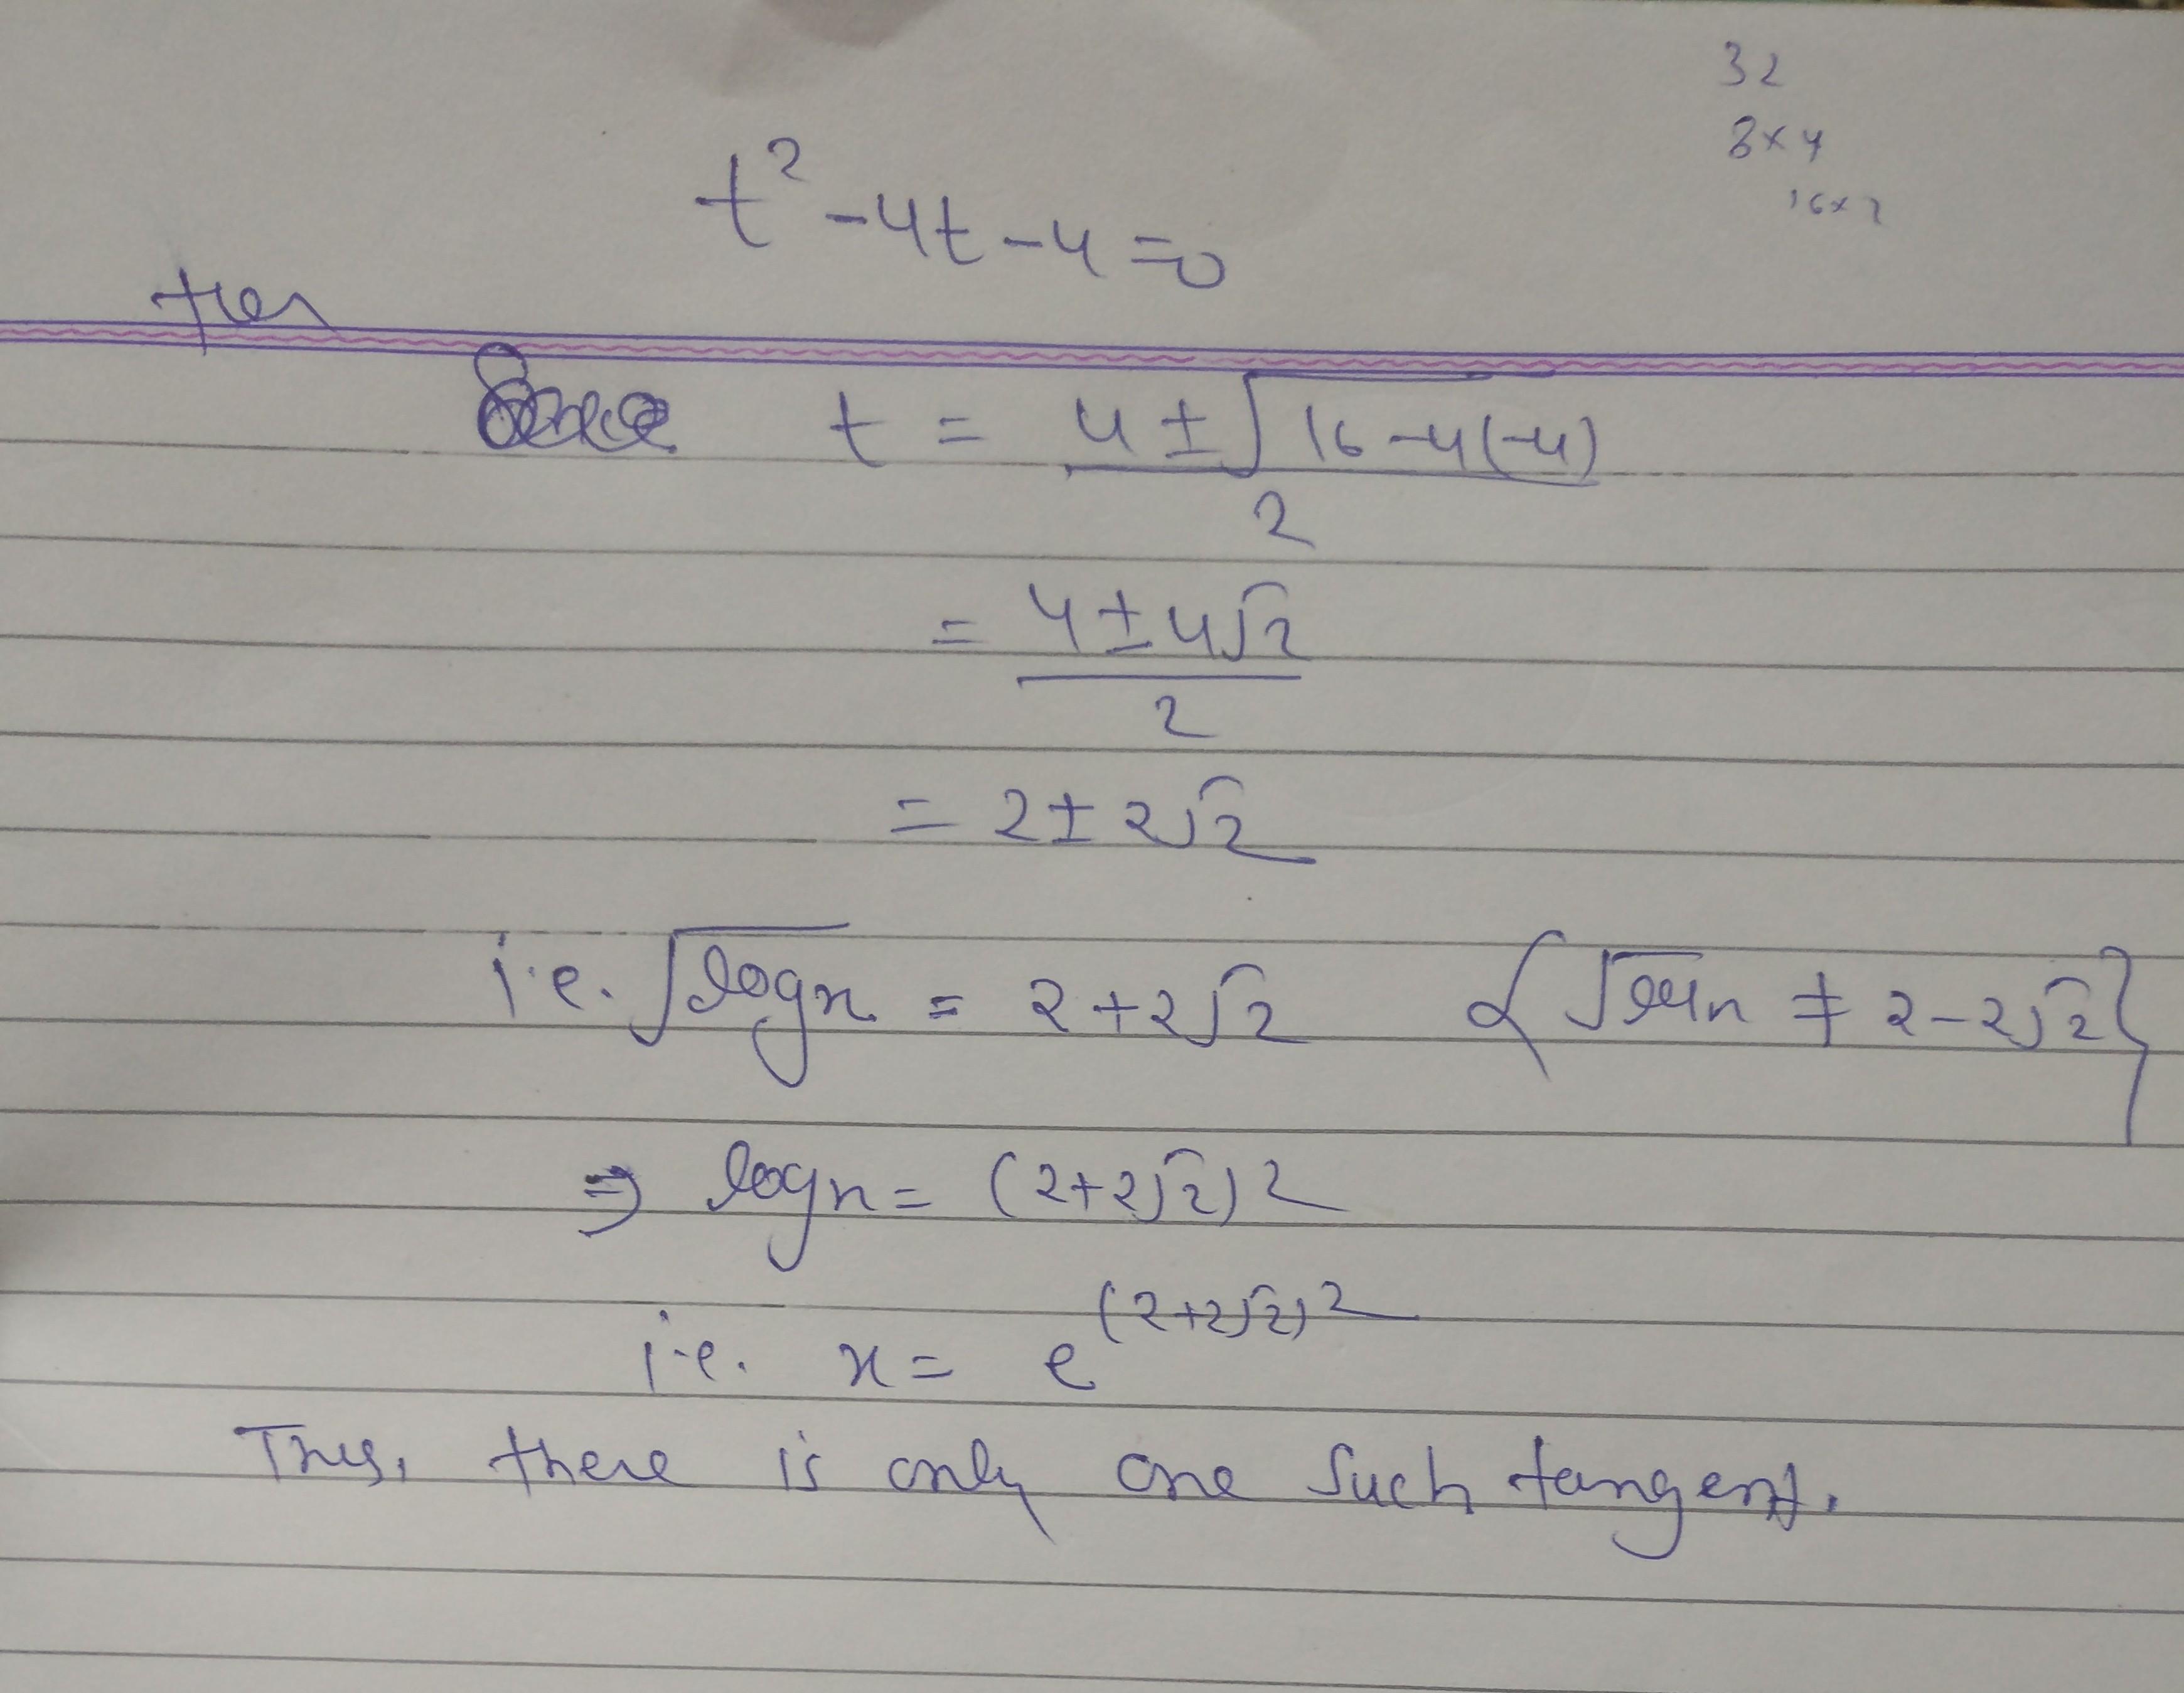 32
8×4
16×2
t² -4t -4 =0
then
t = (4 ± √(16 -4(-4)))/2
= (4 ± 4√2)/2
= 2 ± 2√2
i.e. √logx = 2+2√2 {√logx ≠ 2-2√2}
⇒ logx = (2+2√2)²
i.e. x = e^(2+2√2)²
Thus, there is only one such tangent.